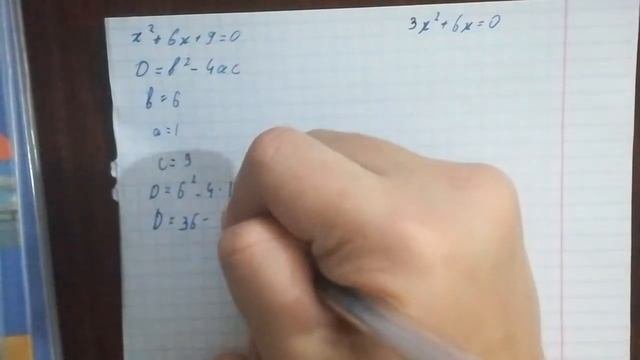 x² + 6x + 9 = 0
D = b² - 4ac
b = 6
a = 1
c = 9
D = 6² - 4 · 1
D = 36 -
3x² + 6x = 0